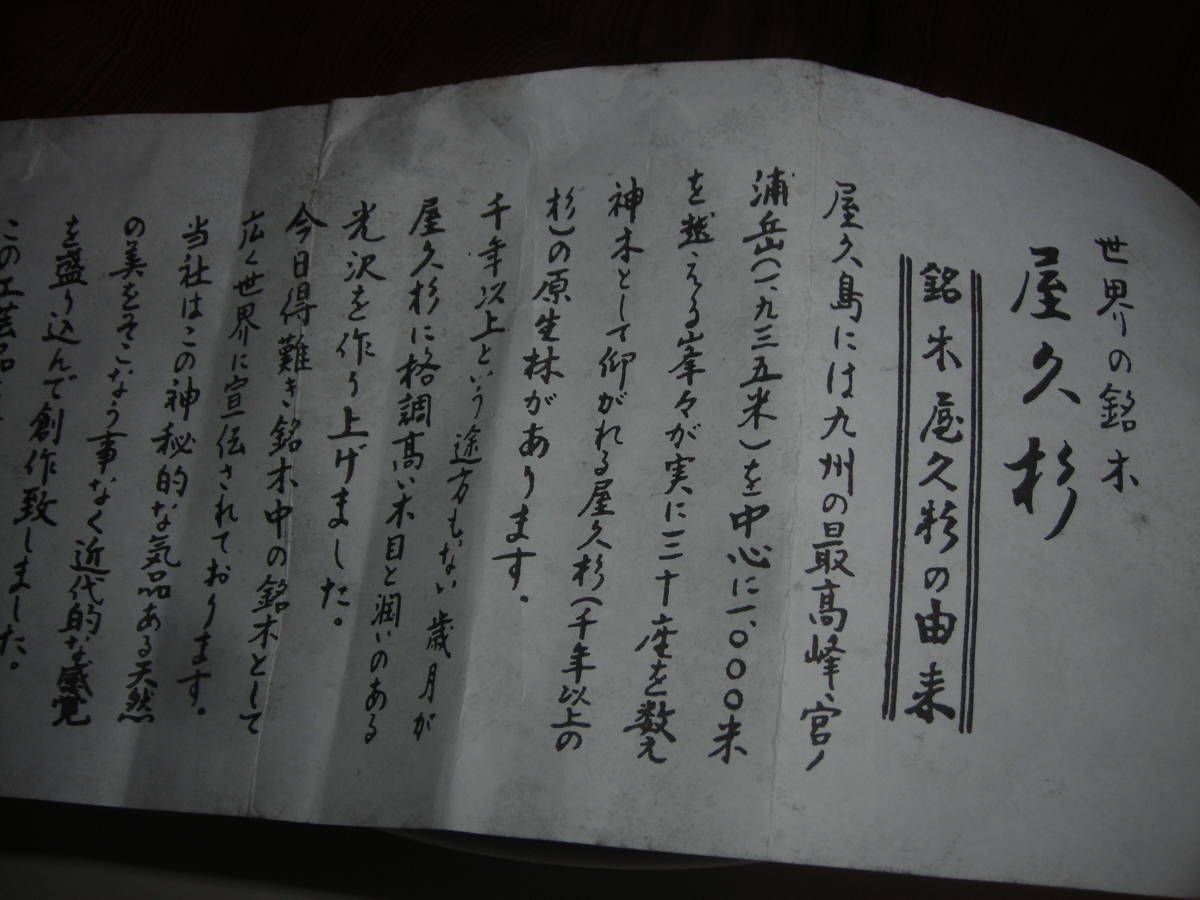 世界の銘木
屋久杉
銘木屋久杉の由来
屋久島には九州の最高峰、宮ノ
浦岳(一、九三五米)を中心に一、〇〇〇米
を越える峯々が実に三十座を数え
神木として仰がれる屋久杉(千年以上の
杉)の原生林があります。
千年以上という途方もない歳月が
屋久杉に格調高い木目と潤いのある
光沢を作り上げました。
今日得難き銘木中の銘木として
広く世界に宣伝されております。
当社はこの神秘的な気品ある天然
の美をそこなう事なく近代的な感覚
を盛り込んで創作致しました。
この工芸品